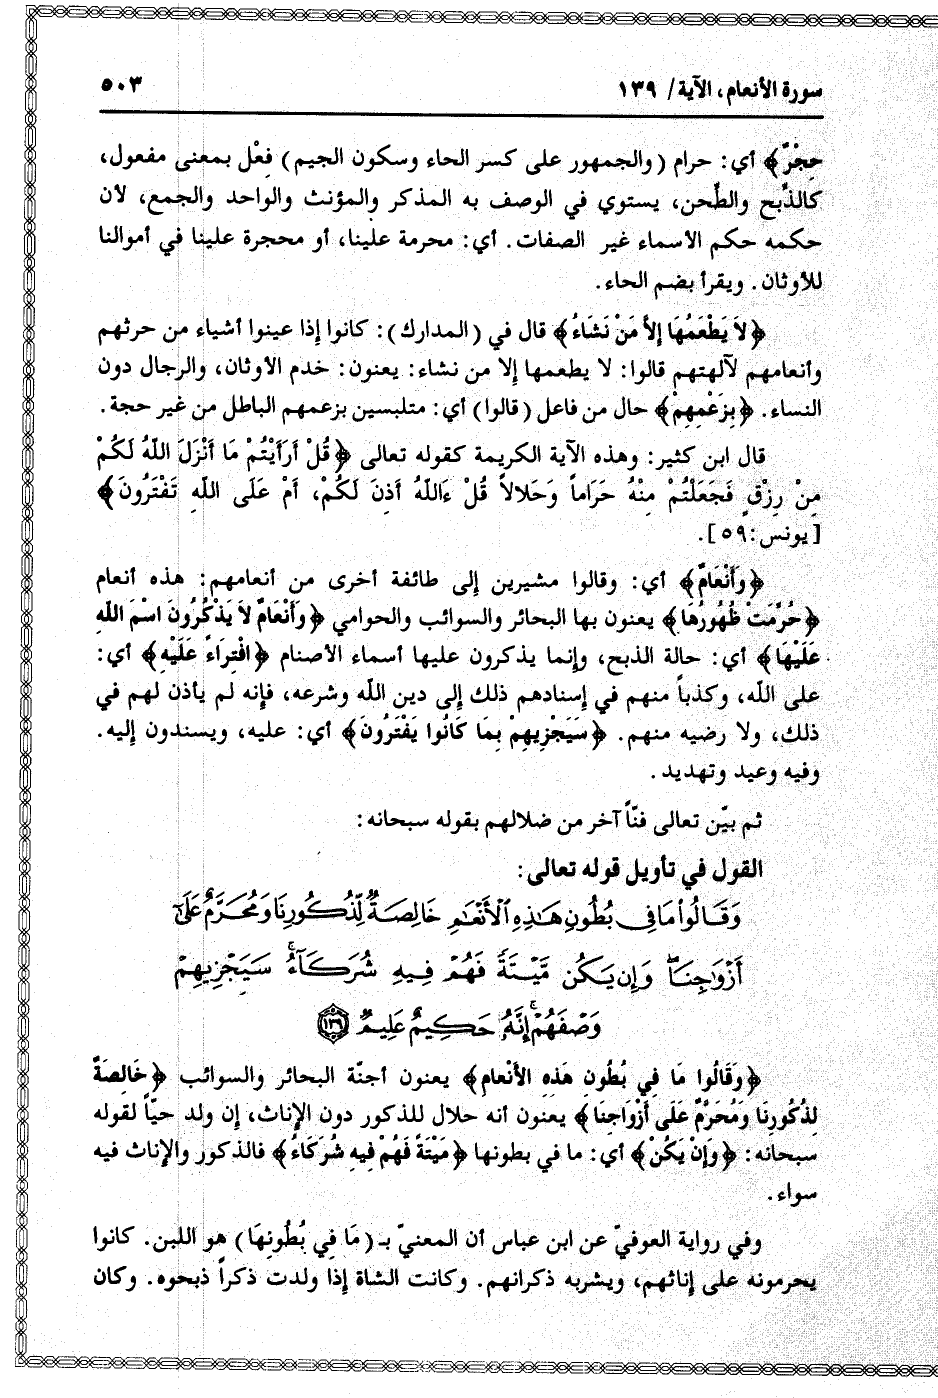 سورة الأنعام، الآية/ ١٣٩
٥٠٣
حِجْرٌ﴾ أي: حرام (والجمهور على كسر الحاء وسكون الجيم) فِعْل بمعنى مفعول،
كالذَّبح والطَّحن، يستوي في الوصف به المذكر والمؤنث والواحد والجمع، لأن
حكمه حكم الأسماء غير الصفات. أي: محرمة علينا، أو محجرة علينا في أموالنا
للأوثان. ويقرأ بضم الحاء.
﴿لاَ يَطْعَمُهَا إِلاَّ مَنْ نَشَاءُ﴾ قال في (المدارك): كانوا إذا عينوا أشياء من حرثهم
وأنعامهم لآلهتهم قالوا: لا يطعمها إلا من نشاء: يعنون: خدم الأوثان، والرجال دون
النساء. ﴿بِزَعْمِهِمْ﴾ حال من فاعل (قالوا) أي: متلبسين بزعمهم الباطل من غير حجة.
قال ابن كثير: وهذه الآية الكريمة كقوله تعالى ﴿قُلْ أَرَأَيْتُمْ مَا أَنْزَلَ اللَّهُ لَكُمْ
مِنْ رِزْقٍ فَجَعَلْتُمْ مِنْهُ حَرَاماً وَحَلالاً قُلْ ءَاللَّهُ أَذِنَ لَكُمْ، أَمْ عَلَى اللَّهِ تَفْتَرُونَ﴾
[يونس:٥٩].
﴿وَأَنْعَامٌ﴾ أي: وقالوا مشيرين إلى طائفة أخرى من أنعامهم: هذه أنعام
﴿حُرِّمَتْ ظُهُورُهَا﴾ يعنون بها البحائر والسوائب والحوامي ﴿وَأَنْعَامٌ لاَ يَذْكُرُونَ اسْمَ اللَّهِ
عَلَيْهَا﴾ أي: حالة الذبح، وإنما يذكرون عليها أسماء الأصنام ﴿افْتِرَاءً عَلَيْهِ﴾ أي:
على اللَّه، وكذباً منهم في إسنادهم ذلك إلى دين اللَّه وشرعه، فإنه لم يأذن لهم في
ذلك، ولا رضيه منهم. ﴿سَيَجْزِيهِمْ بِمَا كَانُوا يَفْتَرُونَ﴾ أي: عليه، ويسندون إليه.
وفيه وعيد وتهديد.
ثم بيّن تعالى فنّاً آخر من ضلالهم بقوله سبحانه:
القول في تأويل قوله تعالى:
وَقَالُوا۟ مَا فِى بُطُونِ هَـٰذِهِ ٱلْأَنْعَـٰمِ خَالِصَةٌ لِّذُكُورِنَا وَمُحَرَّمٌ عَلَىٰٓ
أَزْوَٰجِنَا ۖ وَإِن يَكُن مَّيْتَةً فَهُمْ فِيهِ شُرَكَآءُ ۚ سَيَجْزِيهِمْ
وَصْفَهُمْ ۚ إِنَّهُۥ حَكِيمٌ عَلِيمٌ ﴿١٣٩﴾
﴿وَقَالُوا مَا فِي بُطُونِ هَذِهِ الأَنْعام﴾ يعنون أجنّة البحائر والسوائب ﴿خَالِصَةٌ
لِذُكُورِنَا وَمُحَرَّمٌ عَلَى أَزْوَاجِنَا﴾ يعنون أنه حلال للذكور دون الإناث، إن ولد حيّاً لقوله
سبحانه: ﴿وَإِنْ يَكُنْ﴾ أي: ما في بطونها ﴿مَيْتَةً فَهُمْ فِيهِ شُرَكَاءُ﴾ فالذكور والإناث فيه
سواء.
وفي رواية العوفيّ عن ابن عباس أن المعنيّ بـ (مَا فِي بُطُونِهَا) هو اللبن. كانوا
يحرمونه على إناثهم، ويشربه ذكرانهم. وكانت الشاة إذا ولدت ذكراً ذبحوه. وكان